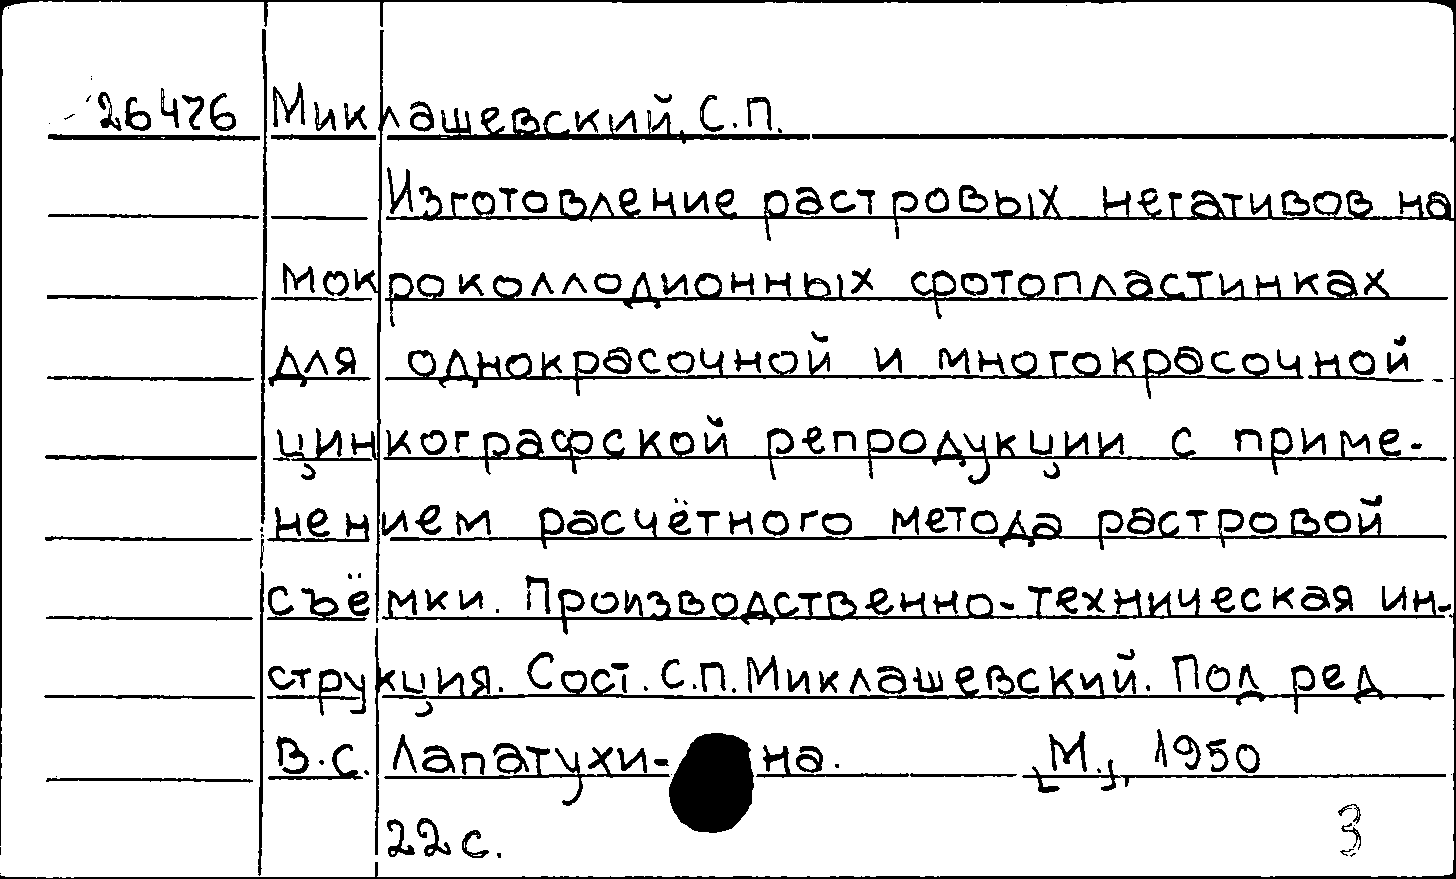 26476 Миклашевский, С.П.
Изготовление растровых негативов на
мокроколлодионных фотопластинках
для однокрасочной и многокрасочной
цинкографской репродукции с приме-
нением расчётного метода растровой
съёмки. Производственно-техническая ин-
струкция. Сост. С.П. Миклашевский. Под ред
В.С. Лапатухи-на. [М.], 1950
22 с. 3